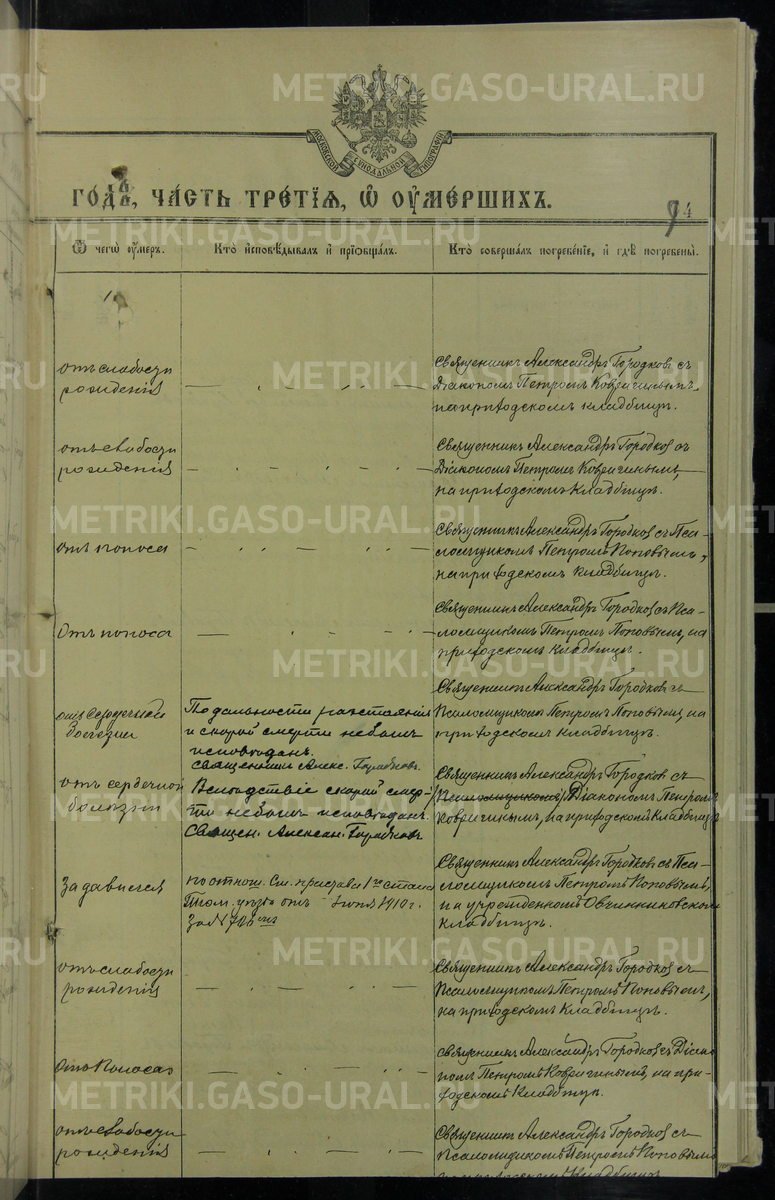 METRIKI.GASO-URAL.RU
МОСКОВСКОЙ СѴНОДАЛЬНОЙ ТИПОГРАФІИ
годъ, часть третїѧ, ѿ оумершихъ.
94
Ѿ чегѡ оумеръ.
Кто исповѣдывалъ и прїобщалъ.
Кто совершалъ погребенїе, и гдѣ погребены.
отъ слабости
рожденія
Священникъ Александръ Городковъ съ
Діакономъ Петромъ Ковригинымъ
на приходскомъ кладбищѣ.
отъ слабости
рожденія
Священникъ Александръ Городковъ съ
Діакономъ Петромъ Ковригинымъ,
на приходскомъ кладбищѣ.
отъ поноса
Священникъ Александръ Городковъ съ Пса-
ломщикомъ Петромъ Поповымъ,
на приходскомъ кладбищѣ.
Отъ поноса
Священникъ Александръ Городковъ съ Пса-
ломщикомъ Петромъ Поповымъ, на
приходскомъ кладбищѣ.
отъ сердечной
болезни
По дальности разстоянія
и скорой смерти небылъ
исповѣданъ.
Священникъ Алекс. Городковъ.
Священникъ Александръ Городковъ съ
Псаломщикомъ Петромъ Поповымъ, на
приходскомъ кладбищѣ.
отъ сердечной
болѣзни
Вслѣдствіе скорой смер-
ти небылъ исповѣданъ.
Священ. Александ. Городковъ
Священникъ Александръ Городковъ съ
Псаломщикомъ, Діакономъ Петромъ
Ковригинымъ, на приходскомъ кладбищѣ
Задавился
по отнош. Г. пристава 1го стана
уѣзда отъ 1910 г.
За №
Священникъ Александръ Городковъ съ Пса-
ломщикомъ Петромъ Поповымъ,
на учрежденномъ Овчинниковском
кладбищѣ.
отъ слабости
рожденія
Священникъ Александръ Городковъ съ
Псаломщикомъ Петромъ Поповымъ,
на приходскомъ кладбищѣ.
Отъ Поноса
Священникъ Александръ Городковъ съ Діако
номъ Петромъ Ковригинымъ, на при-
ходскомъ кладбищѣ.
отъ слабости
рожденія
Священникъ Александръ Городковъ съ
Псаломщикомъ Петромъ Поповымъ